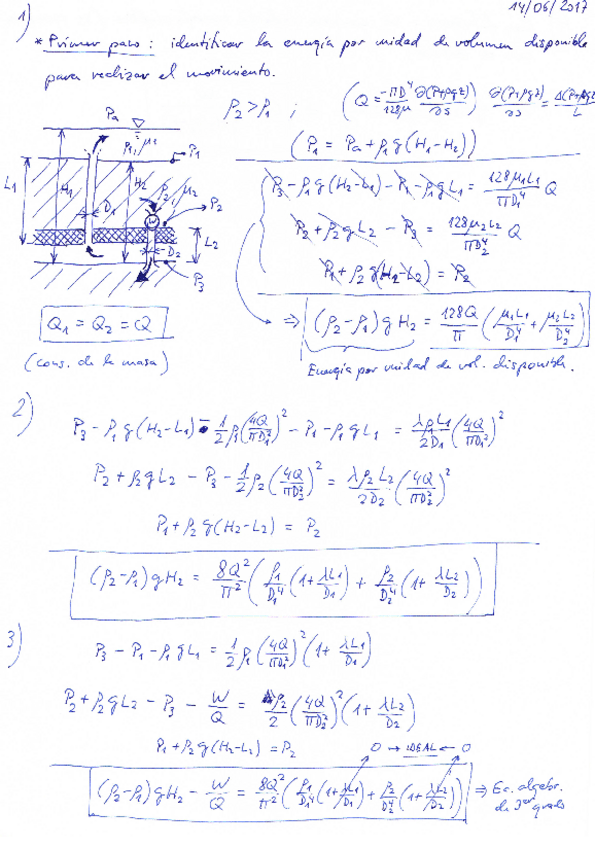 14/06/2017
1)
* Primer paso: identificar la energía por unidad de volumen disponible
para realizar el movimiento.
ρ₂ > ρ₁ ; (Q = -πD⁴/128μ ∂(P+ρgz)/∂s) ∂(P+ρgz)/∂s = Δ(P+ρgz)/L
(P₁ = Pa + ρ₁g(H₁-H₂))
Pa
ρ₁, μ₁
P₁
L₁
H₁
H₂
D₁
ρ₂, μ₂
W
P₂
L₂
D₂
P₃
P₃ - ρ₁g(H₂-L₁) - P₁ - ρ₁gL₁ = 128μ₁L₁/πD₁⁴ Q
P₂ + ρ₂gL₂ - P₃ = 128μ₂L₂/πD₂⁴ Q
P₁ + ρ₂g(H₂-L₂) = P₂
Q₁ = Q₂ = Q
(cons. de la masa)
⇒ (ρ₂-ρ₁)gH₂ = 128Q/π (μ₁L₁/D₁⁴ + μ₂L₂/D₂⁴)
Energía por unidad de vol. disponible.
2)
P₃ - ρ₁g(H₂-L₁) - 1/2 ρ₁(4Q/πD₁²)² - P₁ - ρ₁gL₁ = λρ₁L₁/2D₁ (4Q/πD₁²)²
P₂ + ρ₂gL₂ - P₃ - 1/2 ρ₂(4Q/πD₂²)² = λρ₂L₂/2D₂ (4Q/πD₂²)²
P₁ + ρ₂g(H₂-L₂) = P₂
(ρ₂-ρ₁)gH₂ = 8Q²/π² (ρ₁/D₁⁴ (1+λL₁/D₁) + ρ₂/D₂⁴ (1+λL₂/D₂))
3)
P₃ - P₁ - ρ₁gL₁ = 1/2 ρ₁(4Q/πD₁²)² (1+λL₁/D₁)
P₂ + ρ₂gL₂ - P₃ - W/Q = ρ₂/2 (4Q/πD₂²)² (1+λL₂/D₂)
P₁ + ρ₂g(H₂-L₂) = P₂
0 → IDEAL ← 0
(ρ₂-ρ₁)gH₂ - W/Q = 8Q²/π² (ρ₁/D₁⁴ (1+λL₁/D₁) + ρ₂/D₂⁴ (1+λL₂/D₂)) ⇒ Ec. algebr.
de 3er grado